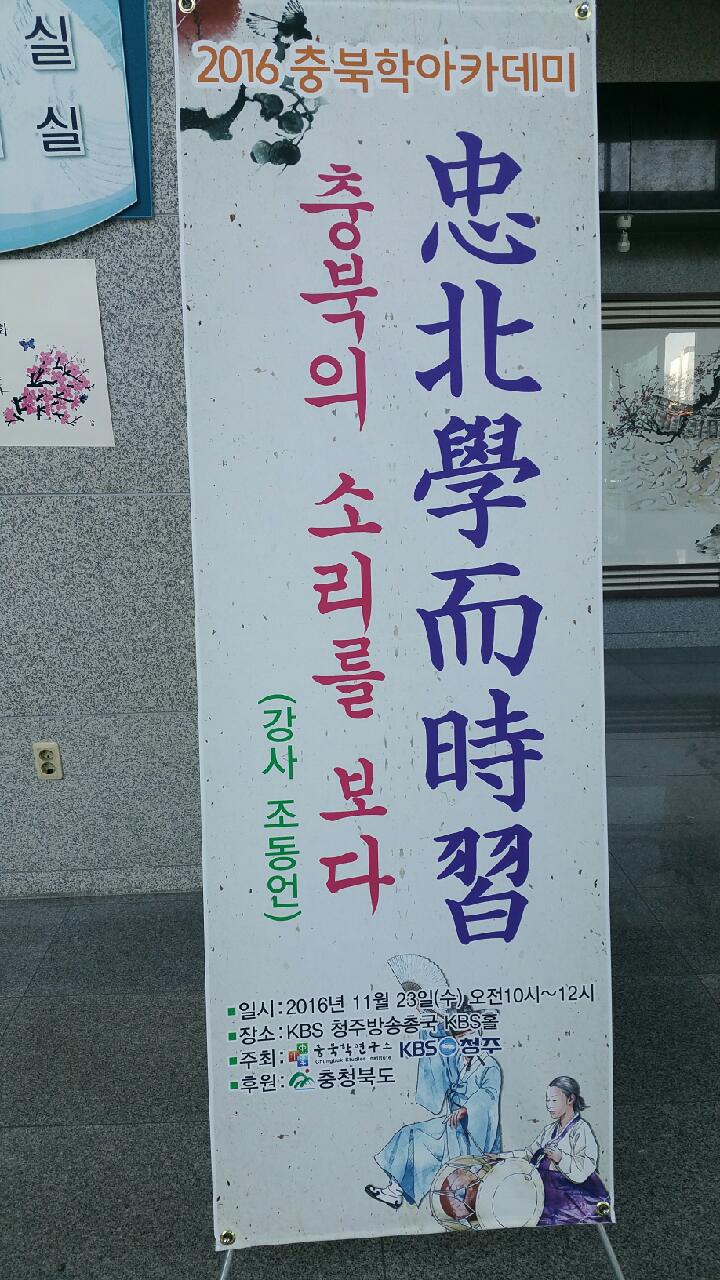 실
실
회
2016 충북학아카데미
忠北學而時習
충북의 소리를 보다
(강사 조동언)
■일시:2016년 11월 23일(수) 오전10시~12시
■장소:KBS 청주방송총국 KBS홀
■주최: 충북학연구소 Chungbuk Studies Institute KBS 청주
■후원: 충청북도